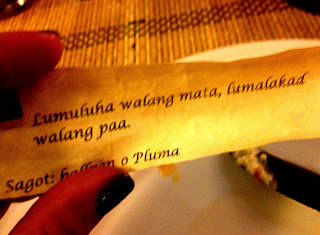 Lumuluha walang mata, lumalakad
walang paa.
Sagot: o Pluma